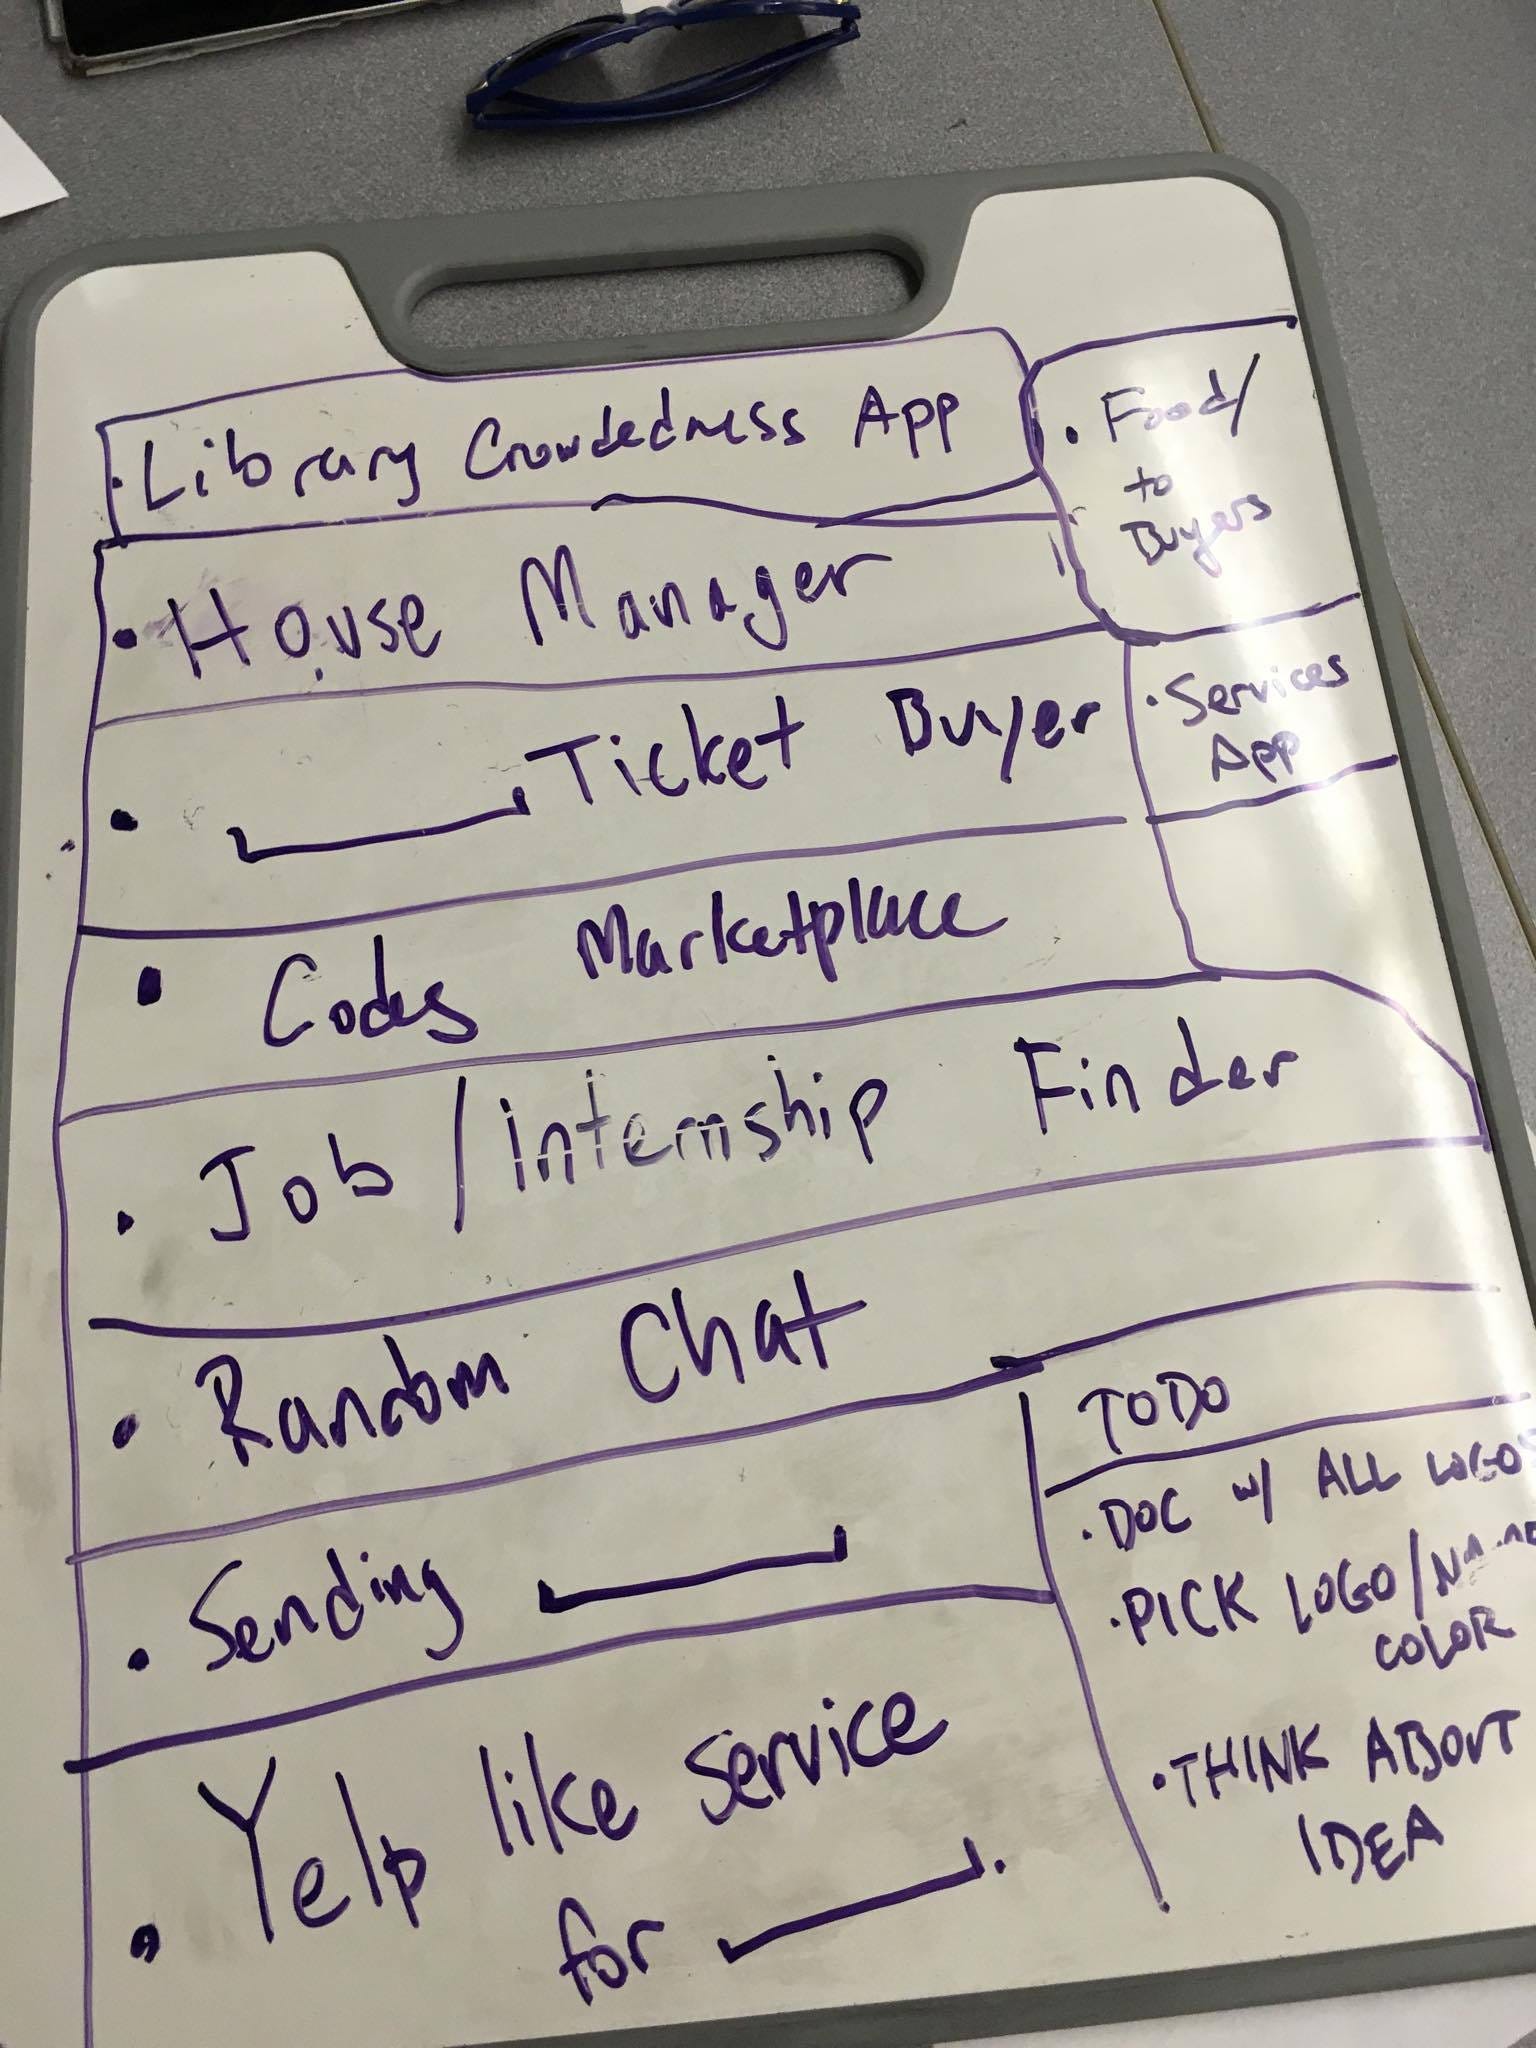 · Library Crowdedness App
· House Manager
· ____ Ticket Buyer
· Codes Marketplace
· Job/internship Finder
· Random Chat
· Sending ____
· Yelp like service
for ____.
· Food/
to
Buyers
· Services
App
TODO
· DOC w/ ALL LOGOS
· PICK LOGO/
COLOR
· THINK ABOUT
IDEA